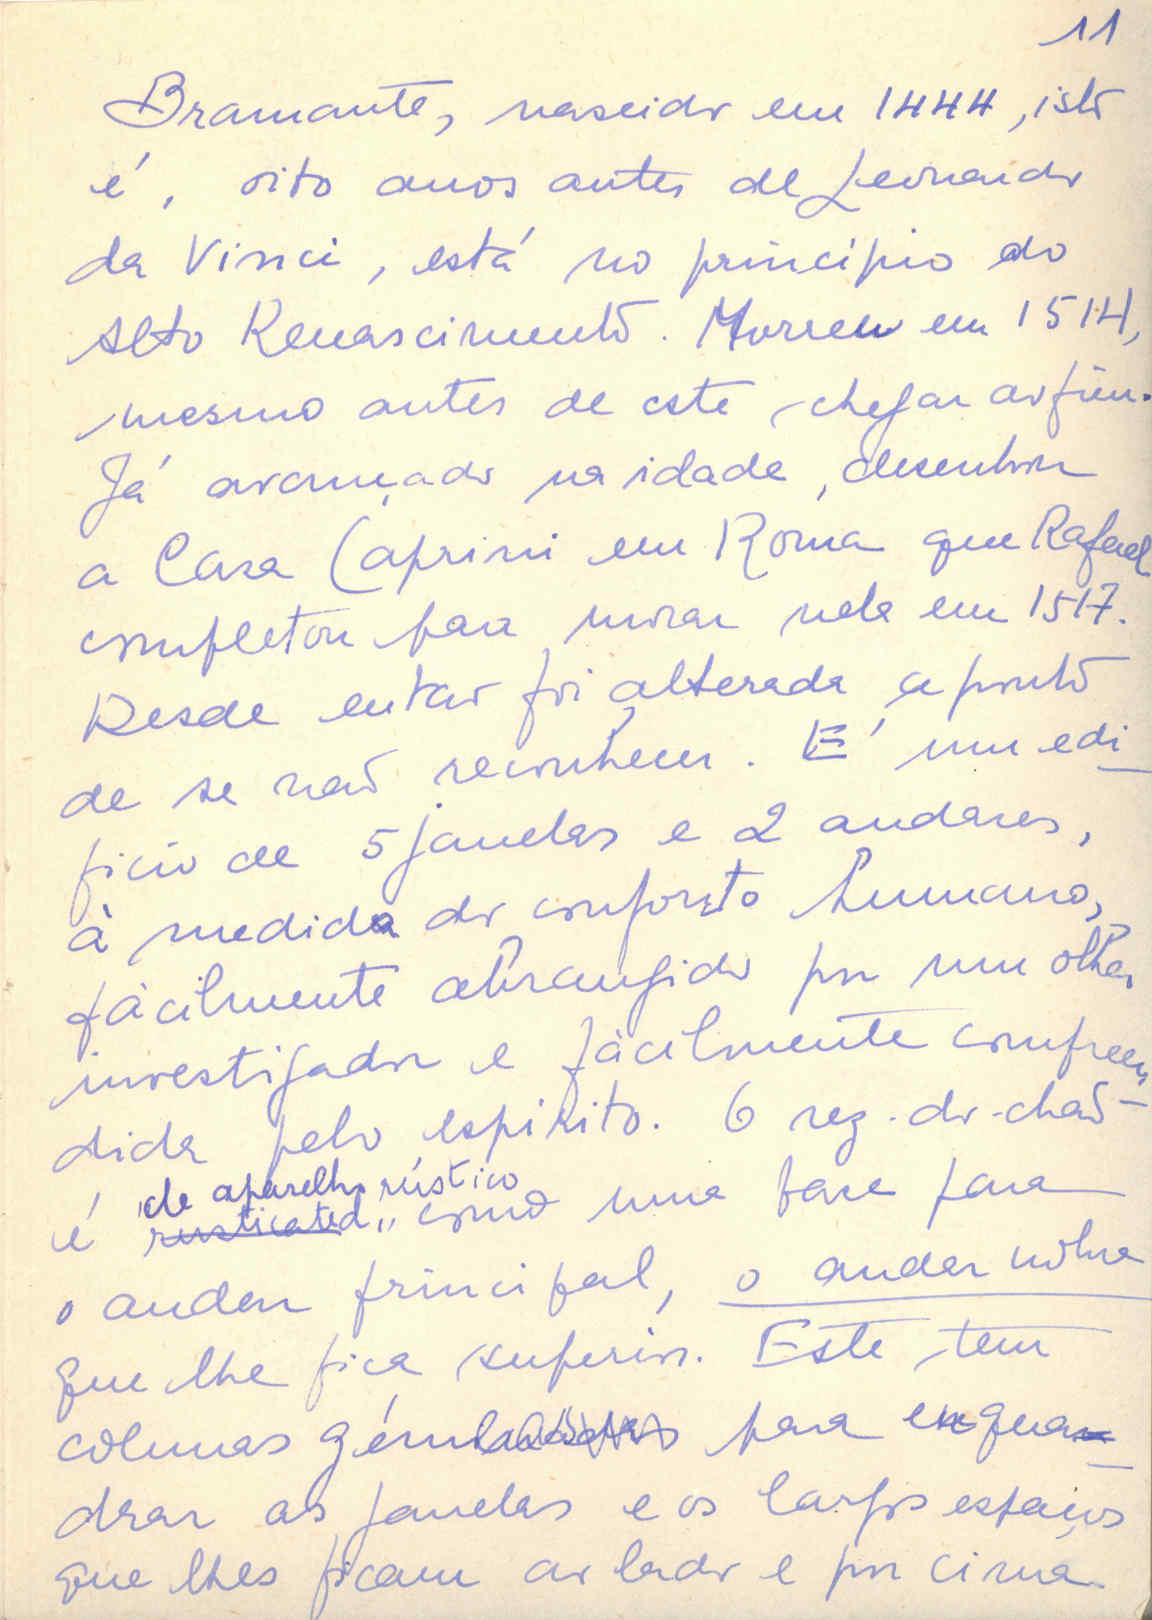 11
Bramante, nascido em 1444, isto
é, oito anos antes de Leonardo
da Vinci, está no princípio do
Alto Renascimento. Morreu em 1514,
mesmo antes de este chegar ao fim.
Já avançado na idade, desenhou
a Casa Caprini em Roma que Rafael
completou para morar nela em 1517.
Desde então foi alterada a ponto
de se não reconhecer. É um edi-
fício de 5 janelas e 2 andares,
à medida do conforto humano,
fàcilmente abrangido por um olhar
investigador e fàcilmente compreen-
dida pelo espírito. O rez-do-chão
de aparelho rústico
é rusticated, como uma base para
o andar principal, o andar nobre
que lhe fica superior. Este tem
colunas para enqua-
drar as janelas e os largos espaços
que lhes ficam ao lado e por cima.